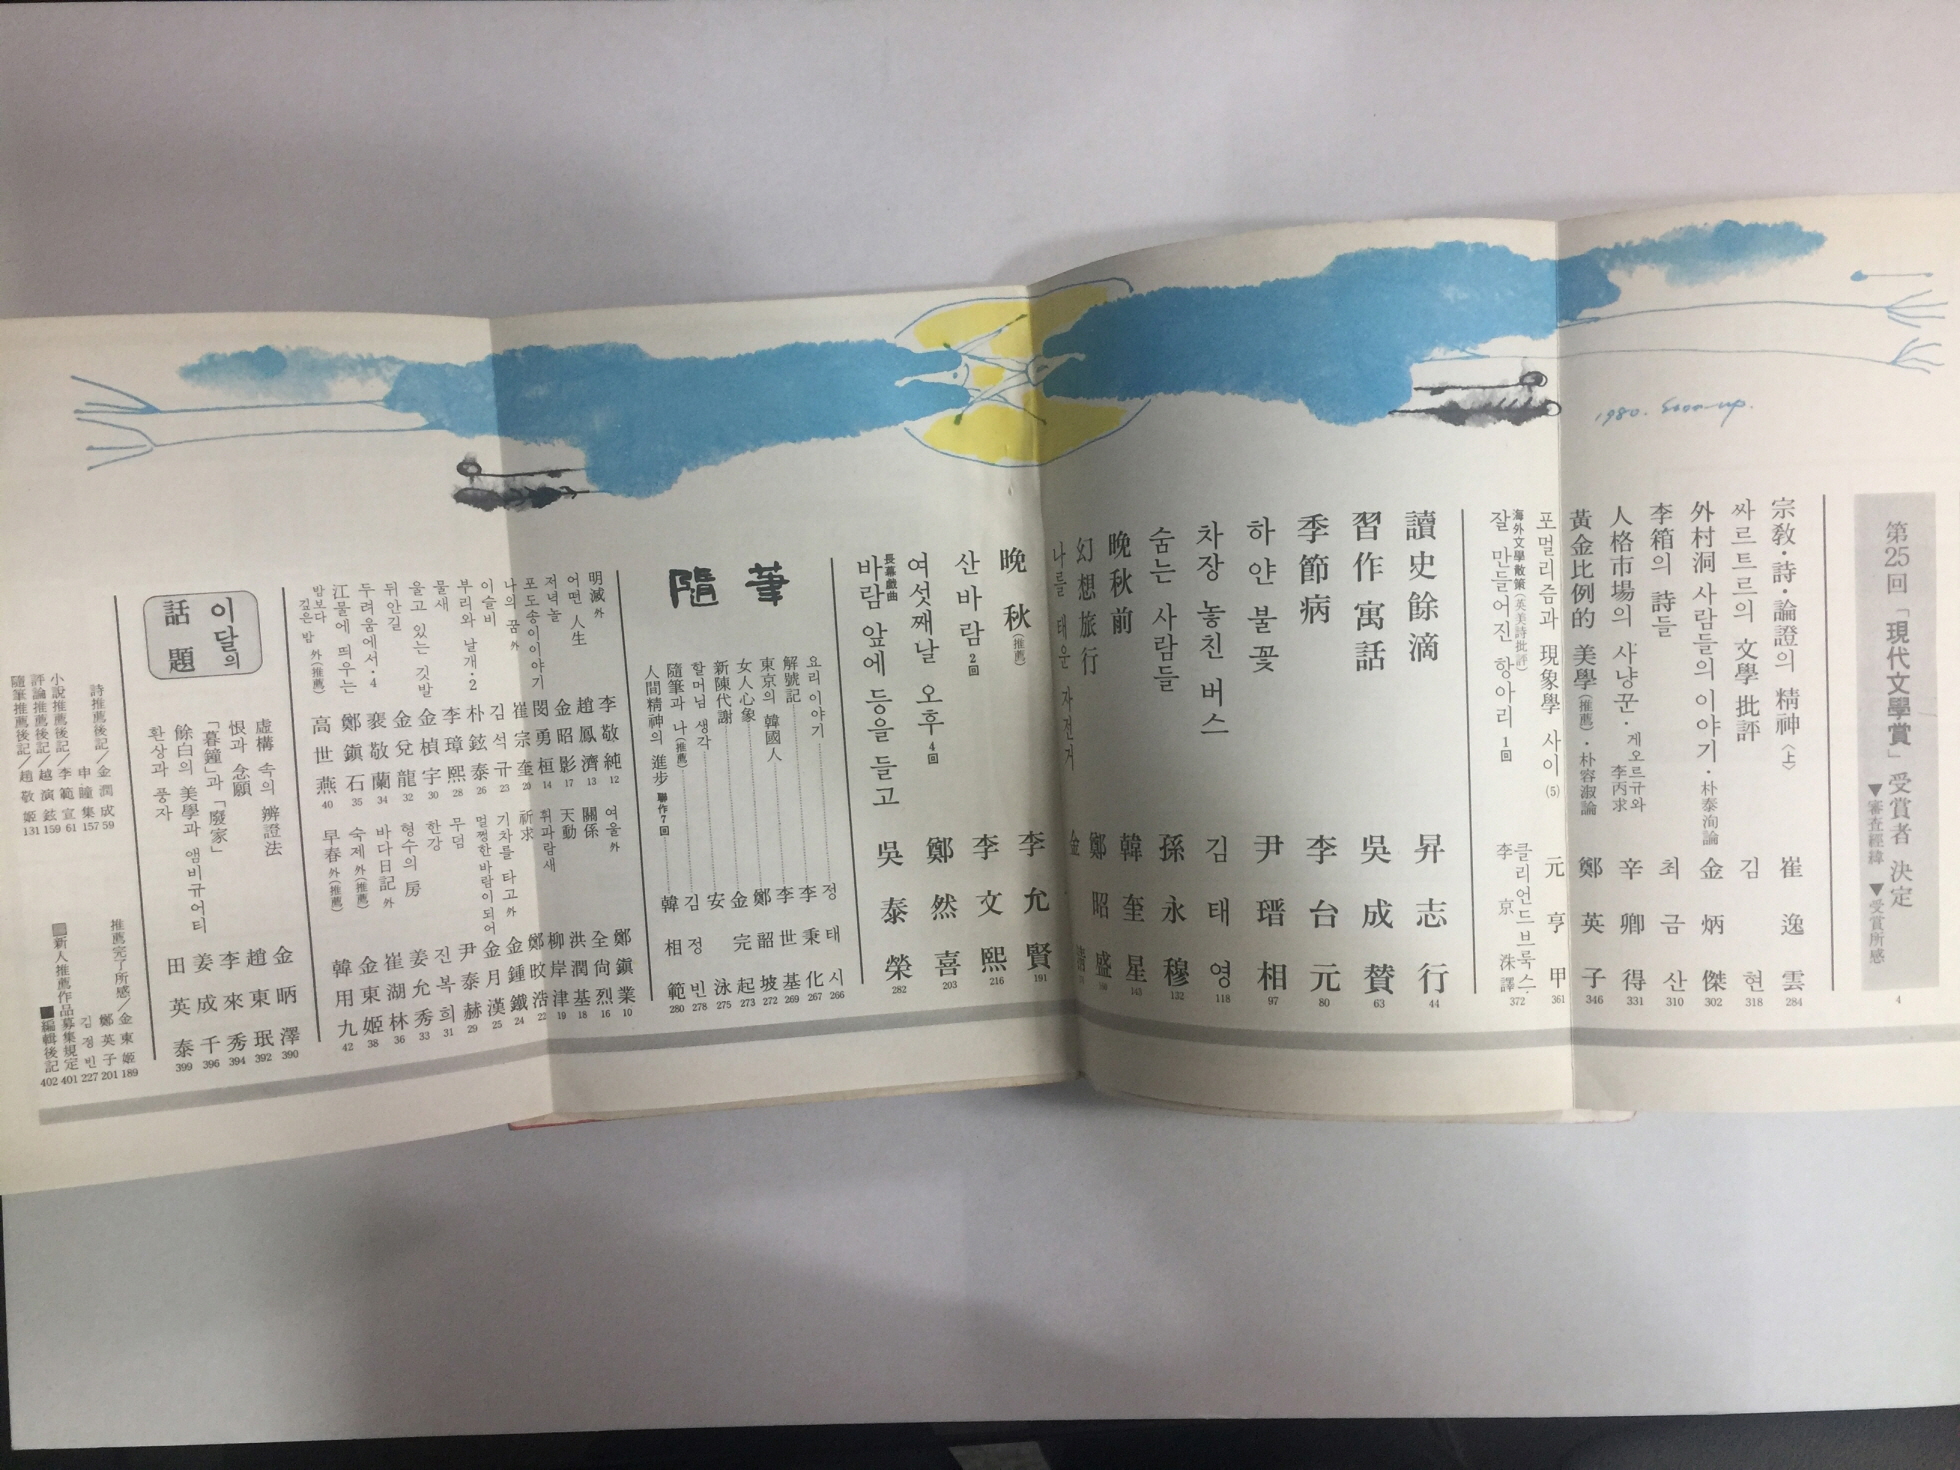 1980.
第25回「現代文學賞」受賞者 決定 4
▼審査經緯 ▼受賞所感
宗教·詩·論證의 精神〈上〉 崔逸雲 284
싸르트르의 文學 批評 김현 318
外村洞 사람들의 이야기·朴泰洵論 金炳傑 302
李箱의 詩들 최금산 310
人格市場의 사냥꾼·게오르규와 李丙求 辛卿得 331
黃金比例的 美學(推薦)·朴容淑論 鄭英子 346
포멀리즘과 現象學 사이 (5) 元亨甲 361
海外文學散策(英美詩批評)
잘 만들어진 항아리 1回 클리언드브룩스·李京洙譯 372
讀史餘滴 昇志行 44
習作寓話 吳成贊 63
季節病 李台元 80
하얀 불꽃 尹瑨相 97
차장 놓친 버스 김태영 118
숨는 사람들 孫永穆 132
晩秋前 韓奎星 143
幻想旅行 鄭昭盛
나를 태운 자전거 金
晩秋(推薦) 李允賢 191
산바람 2回 李文熙 216
여섯째날 오후 4回 鄭然喜 203
長幕戱曲
바람 앞에 등을 들고 吳泰榮 282
隨筆
요리 이야기 정태시 266
解號記 李秉化 267
東京의 韓國人 李世基 269
女人心象 鄭韶坡 272
新陳代謝 金完起 273
할머님 생각 安泳 275
隨筆과 나(推薦) 김정빈 278
人間精神의 進步 聯作7回 韓相範 280
明滅 外 李敬純 12
어떤 人生 趙鳳濟 13
저녁놀 金昭影 17
포도송이이야기 閔勇桓 14
나의 꿈 外 崔宗奎 20
이슬비 김석규 23
부리와 날개·2 朴鉉泰 26
물새 李璋熙 28
울고 있는 깃발 金楨宇 30
뒤안길 金兌龍 32
두려움에서·4 裵敬蘭 34
江물에 띄우는 鄭鎭石 35
밤보다 깊은 밤 外(推薦) 高世燕 40
여울 外 鄭鎭業 10
關係 全尙烈 16
天動 洪潤基 18
휘파람새 柳岸津 19
祈求 鄭旼浩 22
기차를 타고 外 金鍾鐵 24
멀쩡한바람이되어 金月漢 25
무덤 尹泰赫 29
한강 진복희 31
형수의 房 姜允秀 33
바다日記 外 崔湖林 36
숙제 外(推薦) 金東姬 38
早春 外(推薦) 韓用九 42
이달의 話題
虛構 속의 辨證法 金昞澤 390
恨과 念願 趙東珉 392
「暮鐘」과「廢家」 李來秀 394
餘白의 美學과 앰비규어티 姜成千 396
환상과 풍자 田英泰 399
詩推薦後記╱金潤成 59
申瞳集 157
小說推薦後記╱李範宣 61
評論推薦後記╱趙演鉉 159
隨筆推薦後記╱趙敬姬 131
推薦完了所感╱金東姬 189
鄭英子 201
김정빈 227
■新人推薦作品募集規定 401
■編輯後記 402